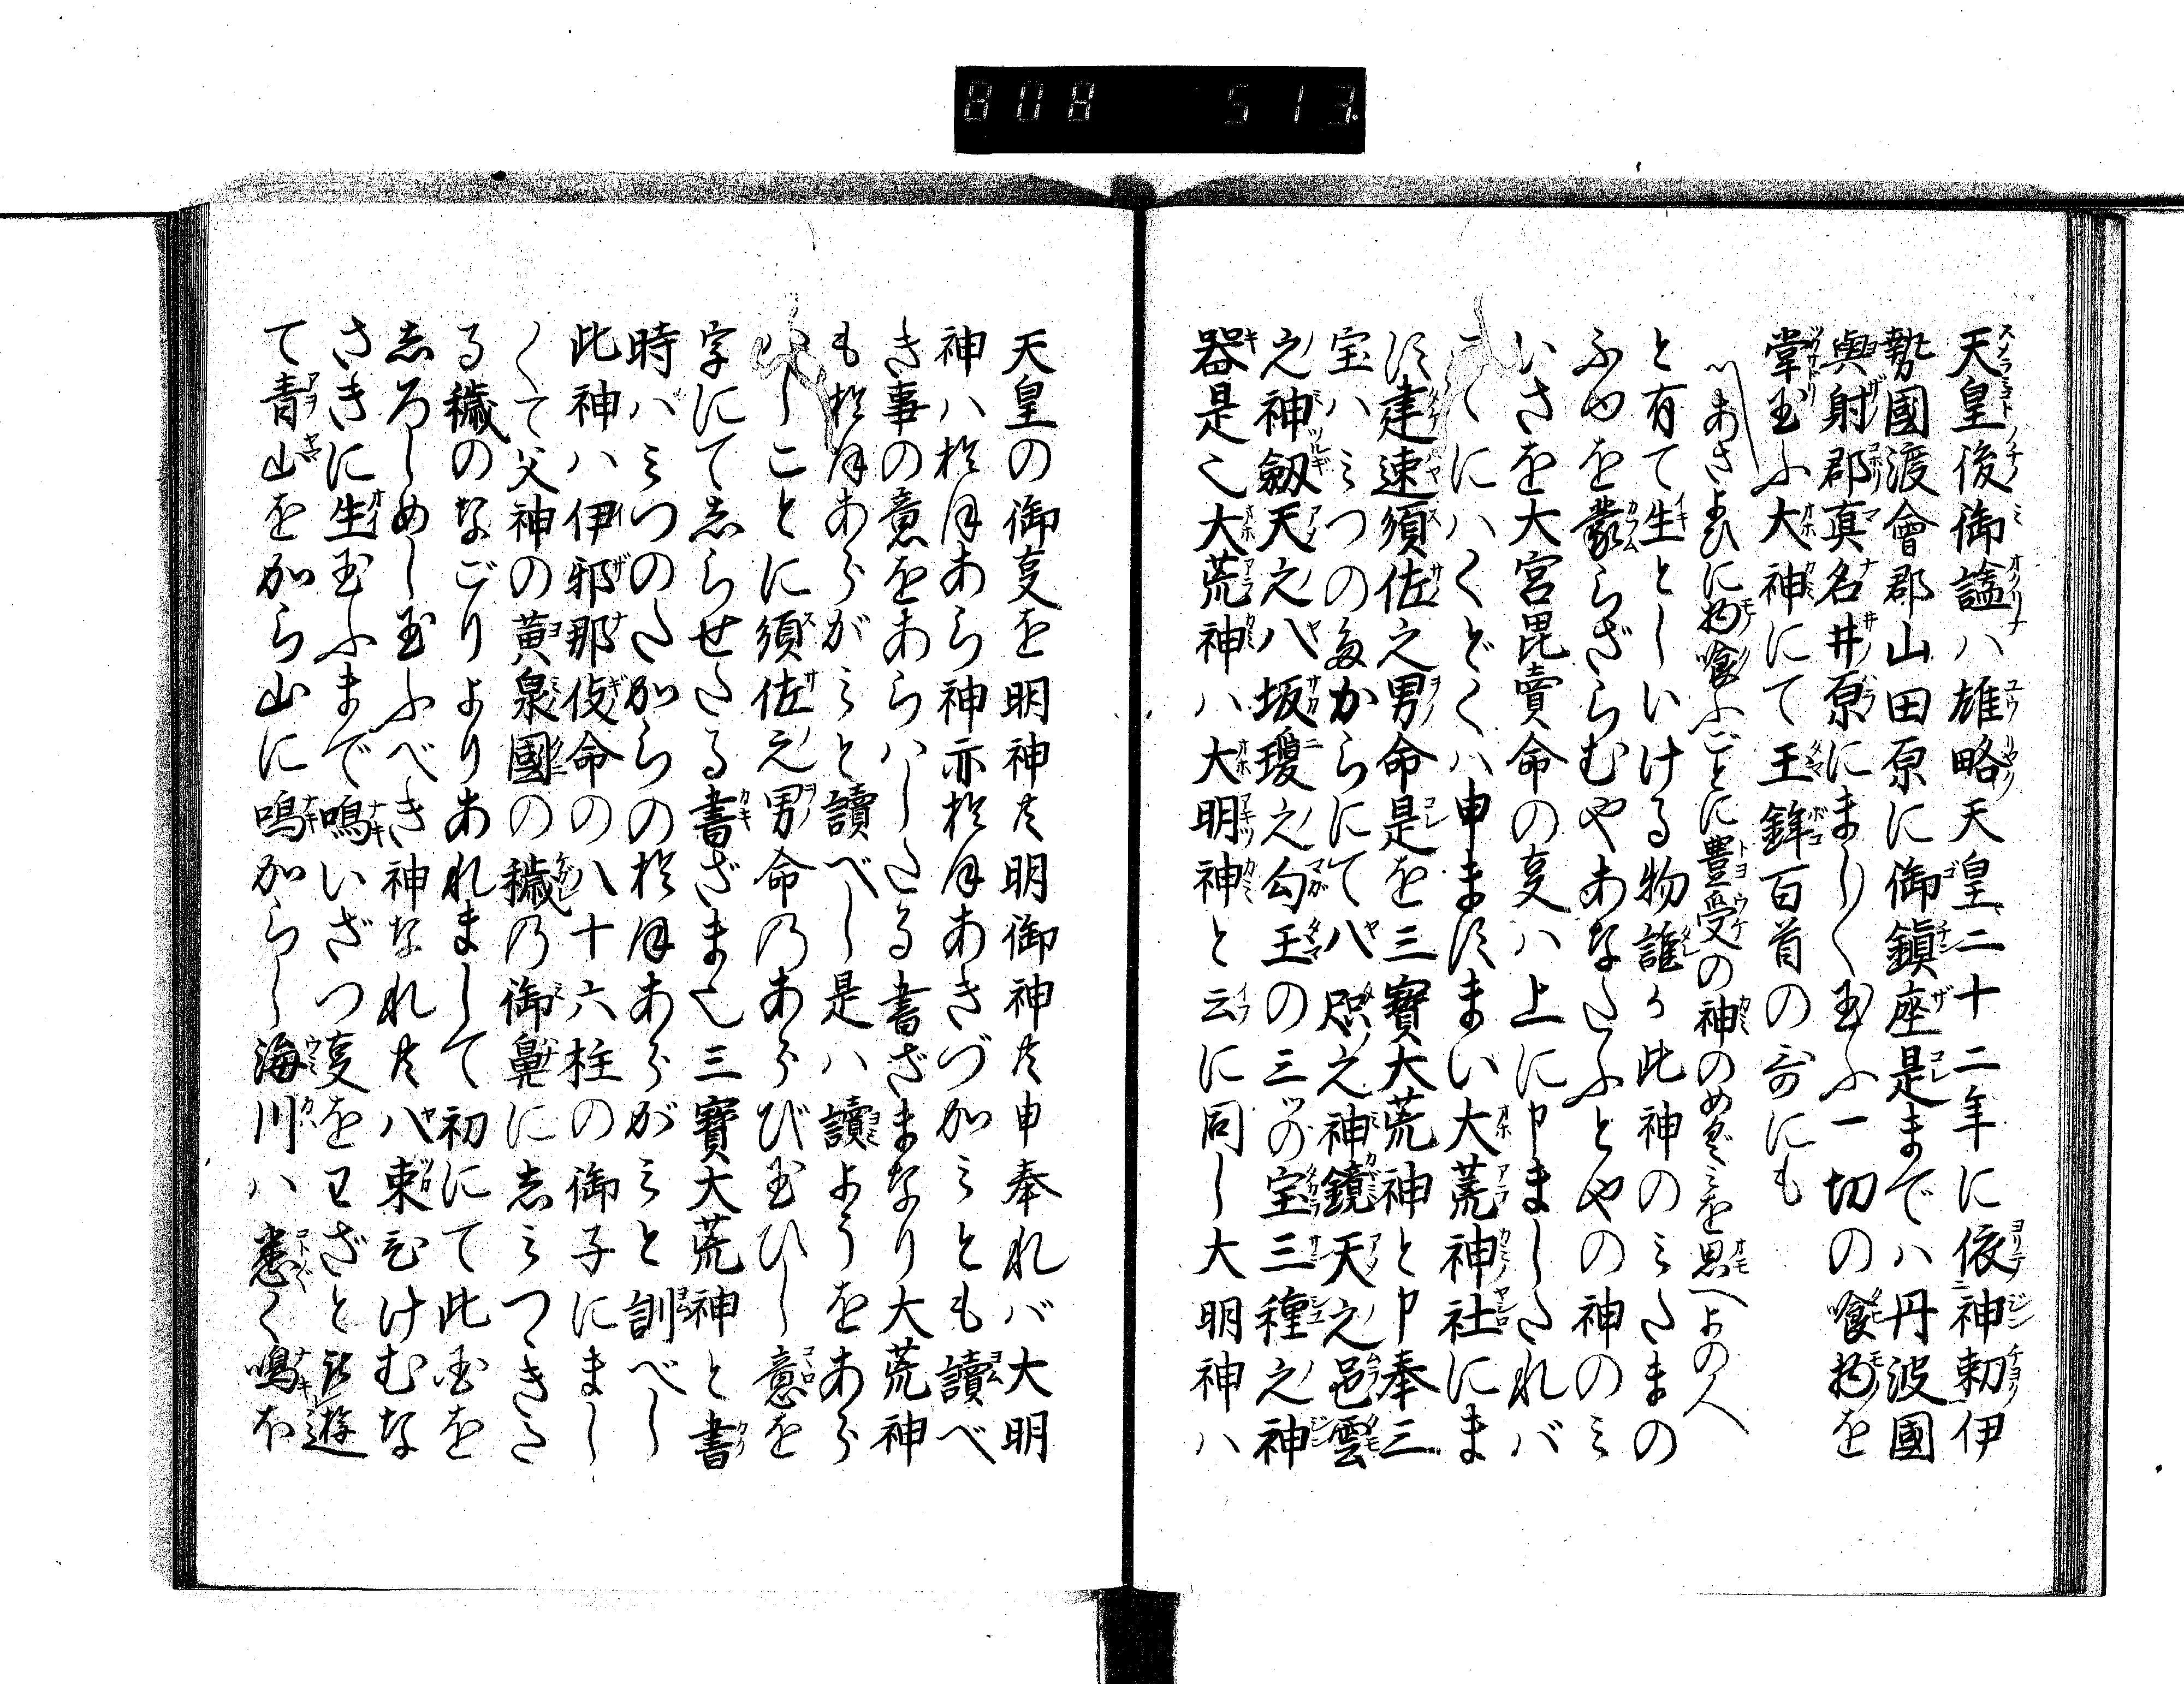 808 513
天皇後御諡ハ雄略天皇二十二年に依神勅伊
勢國渡會郡山田原に御鎮座是までハ丹波國
與射郡真名井原にまし〱玉ふ一切の喰物を
掌玉ふ大神にて王鉾百首の哥にも
あさよひに物喰ふごとに豊受の神のめぐミを思へよの人
と有て生としいける物誰か此神のミたまの
ふゆを蒙らざらむやあなたふとやの神のミ
いさを大宮毘賣命の叓ハ上に申ましたれバ
こゝにハくどくハ申ませまい大荒神社にま
せ建速須佐之男命是を三寶大荒神と申奉三
宝ハミつのたからにて八咫之神鏡天之邑雲
之神劔天之八坂瓊之勾王の三ッの宝三種之神
器是也大荒神ハ大明神と云に同し大明神ハ
天皇の御叓を明神共明御神共申奉れバ大明
神ハおほあら神亦おほあきづかミとも讀べ
き事の意をあらハしたる書ざまなり大荒神
もおほあらがミと讀べし是ハ讀ようをあら
ハしことに須佐之男命乃あらび玉ひし意を
字にて志らせたる書ざま也三寶大荒神と書
時バミつのたからのおほあらがミと訓べし
此神ハ伊邪那伎命の八十六柱の御子にまし
〱て父神の黄泉國の穢乃御鼻に志ミつきた
る穢のなごりよりあれまして初にて此国を
志ろしめし玉ふべき神なれ共八束ひけむな
さきに生玉ふまで鳴いざつ叓をわざと被遊
て青山をから山に鳴からし海川ハ悉く鳴ほ